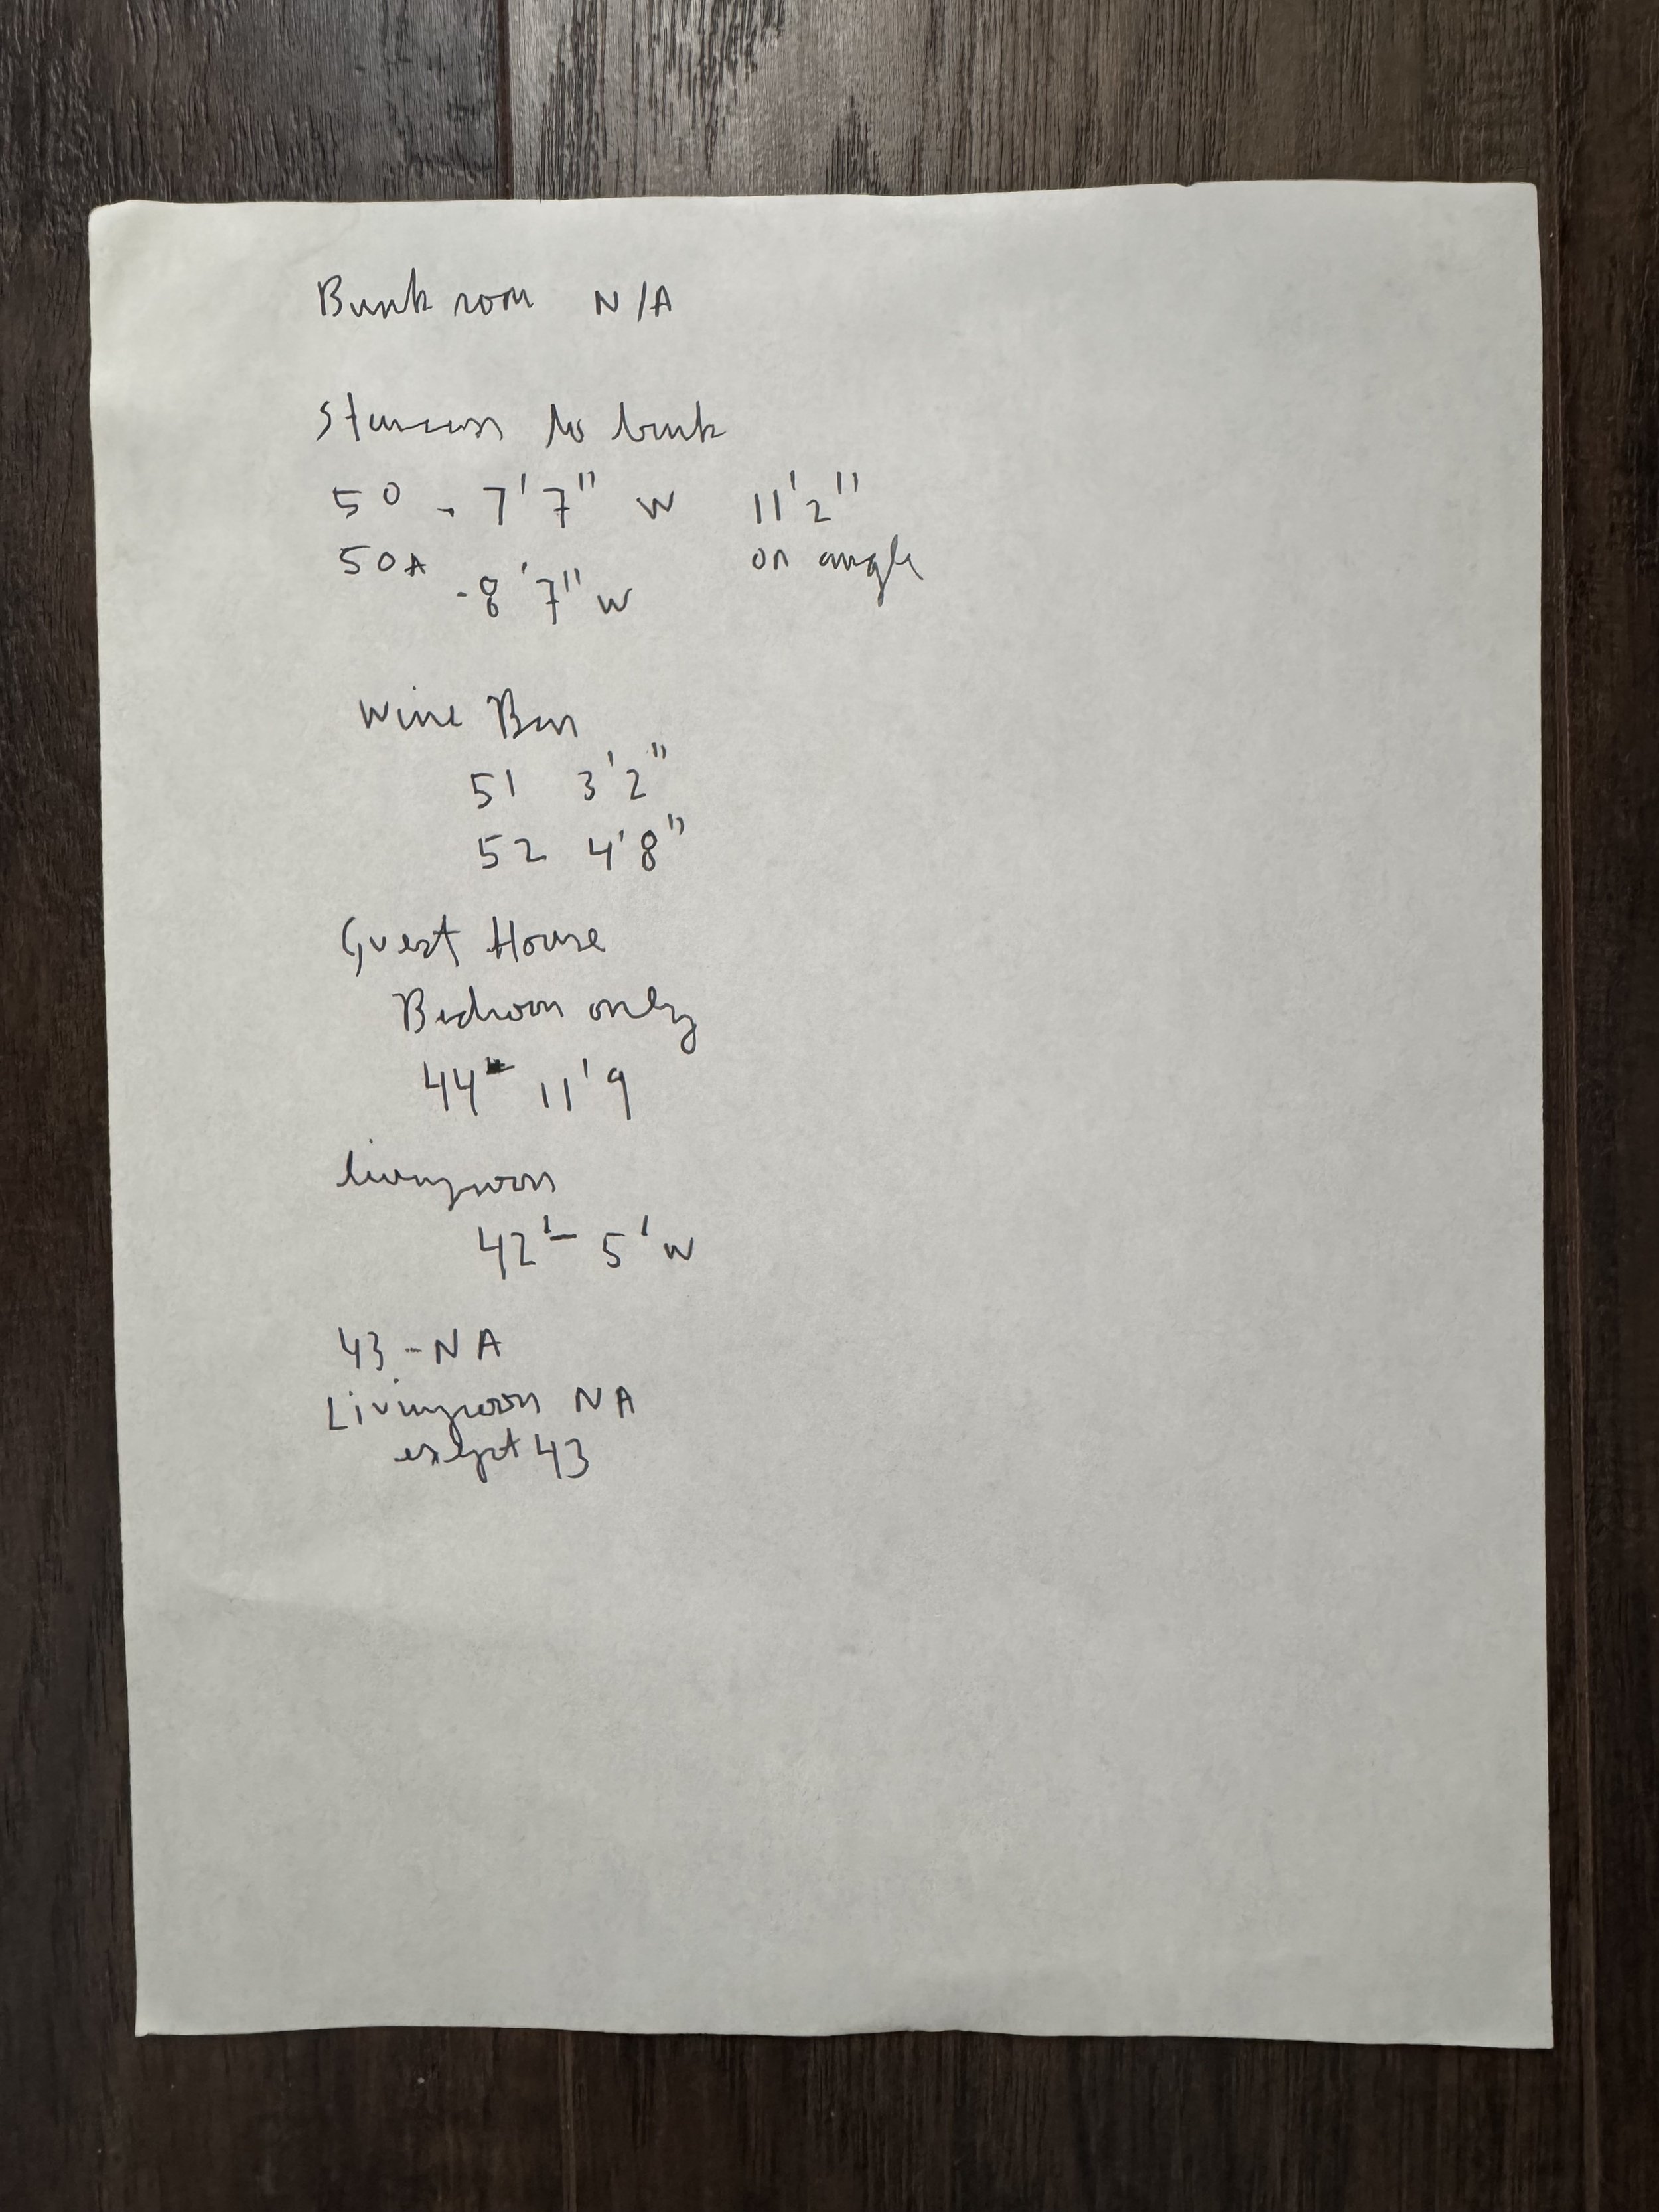 Bunk room N/A
Staircase to bunk
50 - 7'7" W 11'2"
50A on angle
- 8'7" W
Wine Bar
51 3'2"
52 4'8"
Guest House
Bedroom only
44 - 11'9
livingroom
42' - 5' W
43 - NA
Livingroom NA
exept 43